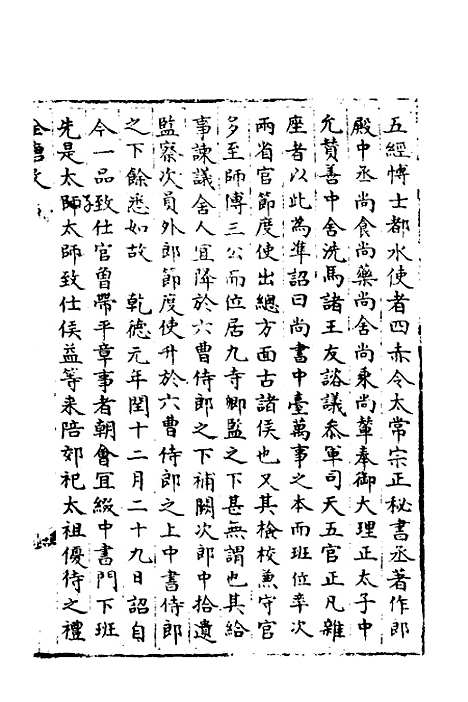 五經愽士都水使者四赤令太常宗正秘書丞著作郎
殿中丞尚食尚藥尚舍尚乘尚輦奉御大理正太子中
允賛善中舍洗馬諸王友諮議叅軍司天五官正凡雜
座者以此為準詔曰尚書中臺萬事之本而班位率次
兩省官節度使出總方面古諸侯也又其檢校兼守官
多至師傅三公而位居九寺卿監之下甚無謂也其給
事諫議舍人宜降於六曹侍郎之下補闕次郎中拾遺
監察次員外郎節度使升於六曹侍郎之上中書侍郎
之下餘悉如故　乾德元年閏十二月二十九日詔自
今一品致仕官曽帶平章事者朝會宜綴中書門下班
先是太子太師致仕侯益等来陪郊祀太祖優待之禮